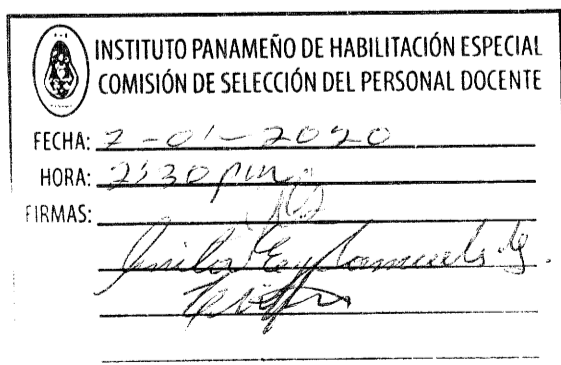 INSTITUTO PANAMEÑO DE HABILITACIÓN ESPECIAL
COMISIÓN DE SELECCIÓN DEL PERSONAL DOCENTE
FECHA: 7-01-2020
HORA: 2:30 pm
FIRMAS: